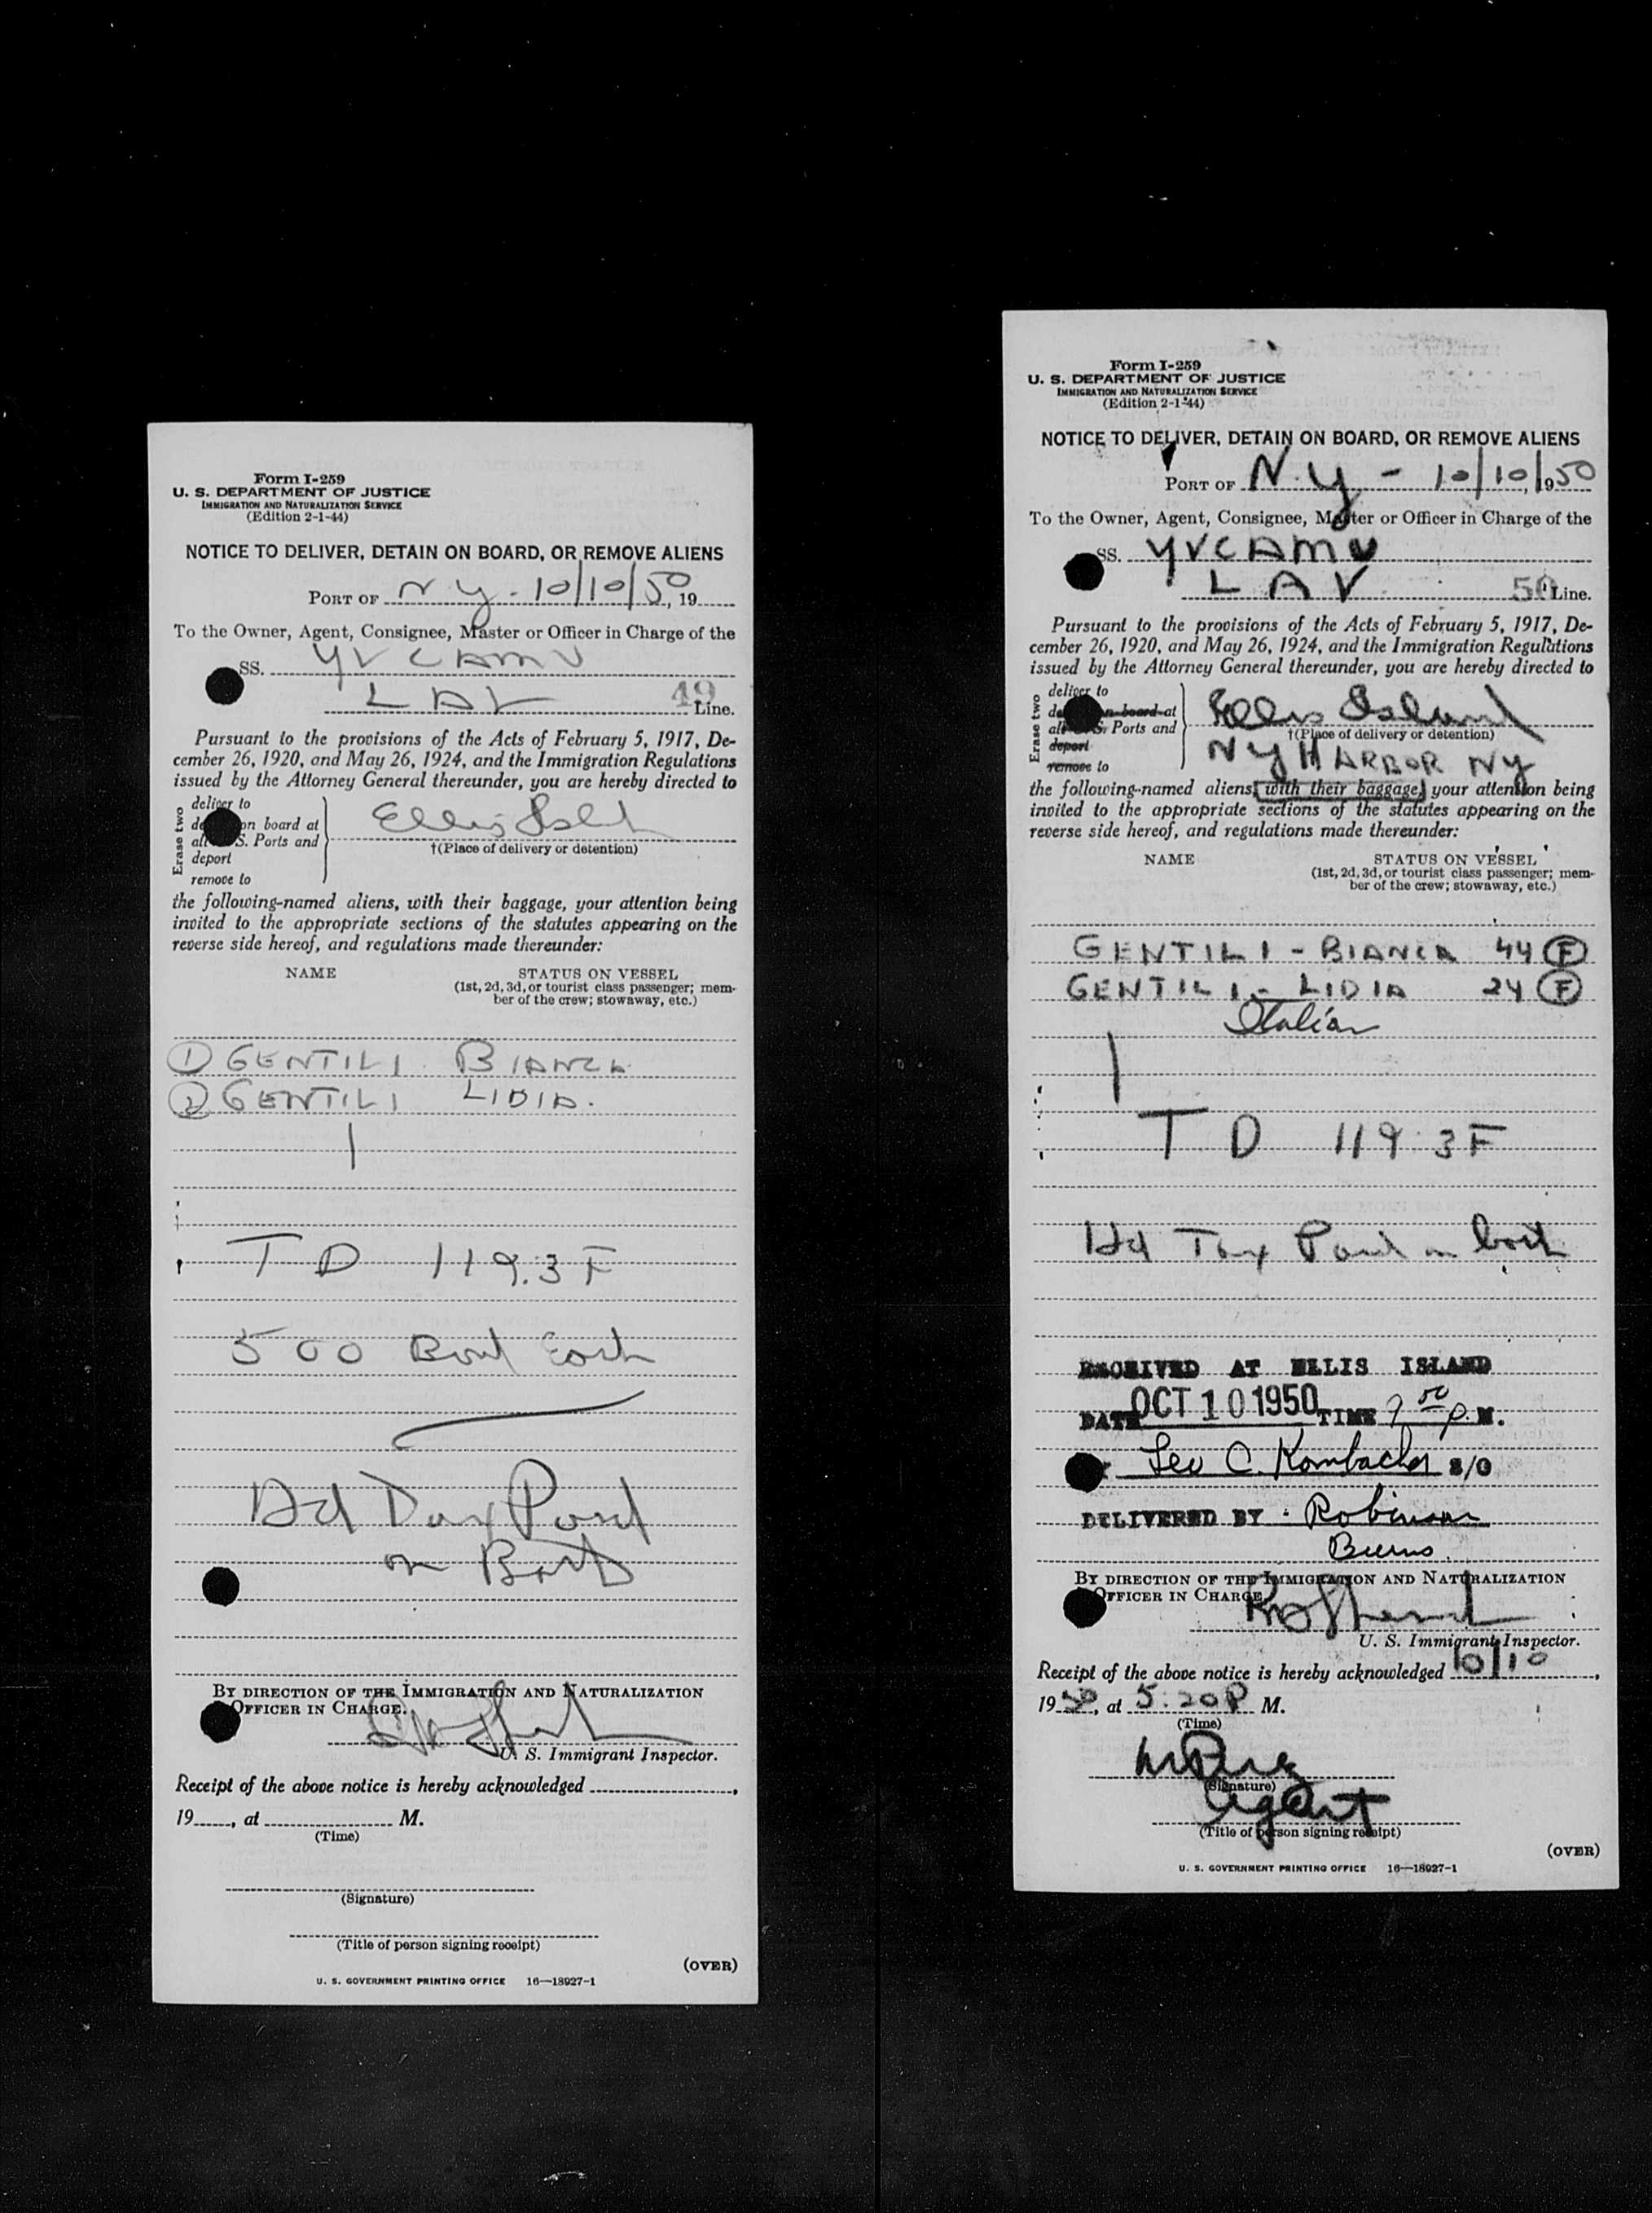 Form I-259
U. S. DEPARTMENT OF JUSTICE
IMMIGRATION AND NATURALIZATION SERVICE
(Edition 2-1-44)
NOTICE TO DELIVER, DETAIN ON BOARD, OR REMOVE ALIENS
PORT OF N.Y. 10/10/50, 19
To the Owner, Agent, Consignee, Master or Officer in Charge of the
SS. YVCAMV
LAV 49 Line.
Pursuant to the provisions of the Acts of February 5, 1917, De-
cember 26, 1920, and May 26, 1924, and the Immigration Regulations
issued by the Attorney General thereunder, you are hereby directed to
Erase two
deliver to
on board at
S. Ports and
deport
remove to
Ellis Isld
†(Place of delivery or detention)
the following-named aliens, with their baggage, your attention being
invited to the appropriate sections of the statutes appearing on the
reverse side hereof, and regulations made thereunder:
NAME STATUS ON VESSEL
(1st, 2d, 3d, or tourist class passenger; mem-
ber of the crew; stowaway, etc.)
① GENTILI BIANCA
② GENTILI LIDIA.
T D 119.3F
500 Bond Each
Hd Tax Paid
on Both
BY DIRECTION OF THE IMMIGRATION AND NATURALIZATION
OFFICER IN CHARGE.
U. S. Immigrant Inspector.
Receipt of the above notice is hereby acknowledged
19, at M.
(Time)
(Signature)
(Title of person signing receipt)
(OVER)
U. S. GOVERNMENT PRINTING OFFICE 16—18927-1
Form I-259
U. S. DEPARTMENT OF JUSTICE
IMMIGRATION AND NATURALIZATION SERVICE
(Edition 2-1-44)
NOTICE TO DELIVER, DETAIN ON BOARD, OR REMOVE ALIENS
PORT OF N.Y - 10/10, 1950
To the Owner, Agent, Consignee, Master or Officer in Charge of the
SS. YVCAMV
LAV 50 Line.
Pursuant to the provisions of the Acts of February 5, 1917, De-
cember 26, 1920, and May 26, 1924, and the Immigration Regulations
issued by the Attorney General thereunder, you are hereby directed to
Erase two
deliver to
on board at
S. Ports and
deport
remove to
Ellis Island
†(Place of delivery or detention)
NY HARBOR NY
the following-named aliens, with their baggage, your attention being
invited to the appropriate sections of the statutes appearing on the
reverse side hereof, and regulations made thereunder:
NAME STATUS ON VESSEL
(1st, 2d, 3d, or tourist class passenger; mem-
ber of the crew; stowaway, etc.)
GENTILI - BIANCA 44 F
GENTILI - LIDIA 24 F
Italian
T D 119.3F
Hd Tax Paid on both
RECEIVED AT ELLIS ISLAND
DATE OCT 10 1950 TIME P.M.
Leo C. Kombacher S/O
DELIVERED BY : Robinson
Burns
BY DIRECTION OF THE IMMIGRATION AND NATURALIZATION
OFFICER IN CHARGE
U. S. Immigrant Inspector.
Receipt of the above notice is hereby acknowledged 10/10,
1950, at 5:20 P M.
(Time)
(Signature)
Agent
(Title of person signing receipt)
(OVER)
U. S. GOVERNMENT PRINTING OFFICE 16—18927-1